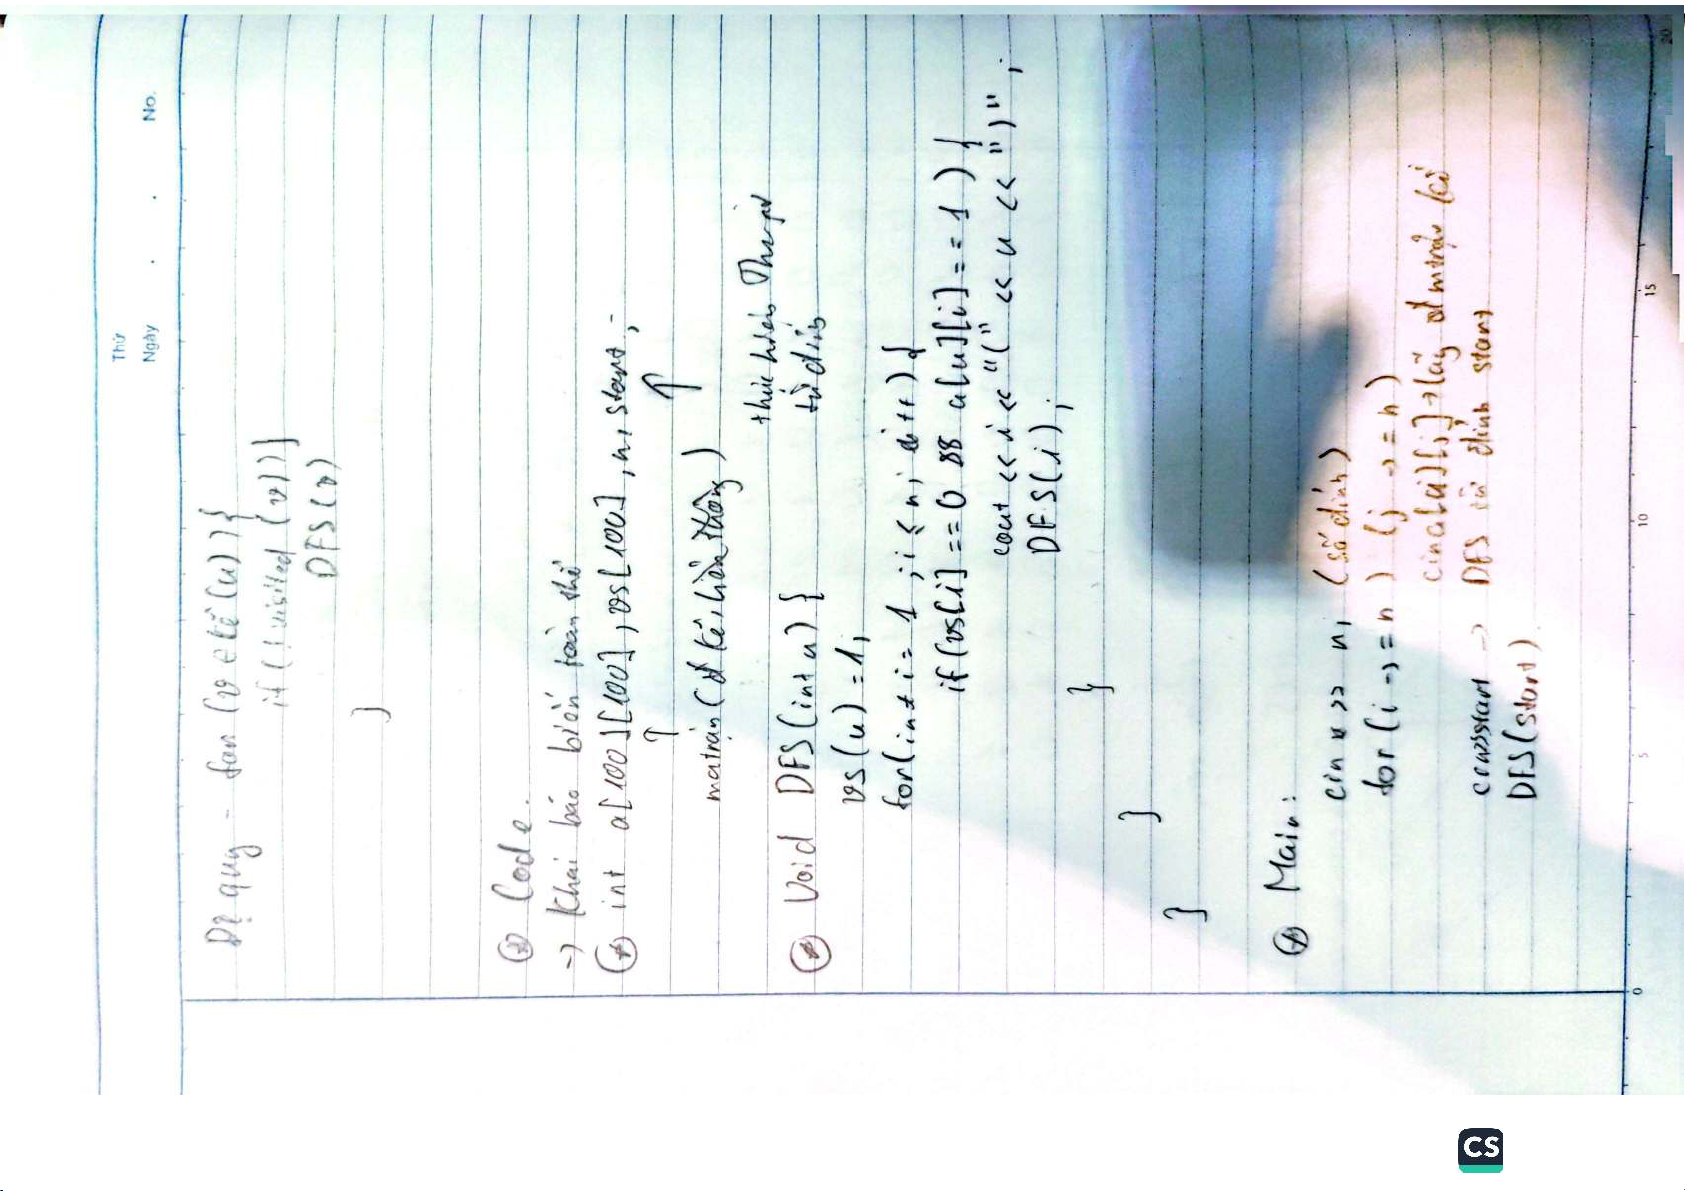 Thứ
Ngày . . No.
Đệ quy - for (v ∈ kề (u)) {
if (!visited (v))]
DFS (v)
}
⊛ Code.
→ Khai báo biến toàn thể
⊛ int a[100][100], vs[100], n, start;
↑ ↑
ma trận (đồ kề, liên thông)
thực hiện Thuật
từ đỉnh
⊛ Void DFS (int u) {
vs(u) = 1;
for(int i = 1 ; i ≤ n; i++) {
if (vs[i] == 0 && a[u][i] == 1) {
cout << i << "(" << u << ")" ;
DFS(i);
}
}
}
⊛ Main:
cin >> n, (số đỉnh)
for (i → = n) (j → = n)
cin a[i][j] → lấy ma trận kề
cin>>start → DFS từ đỉnh start
DFS(start)
0 5 10 15 20
CS